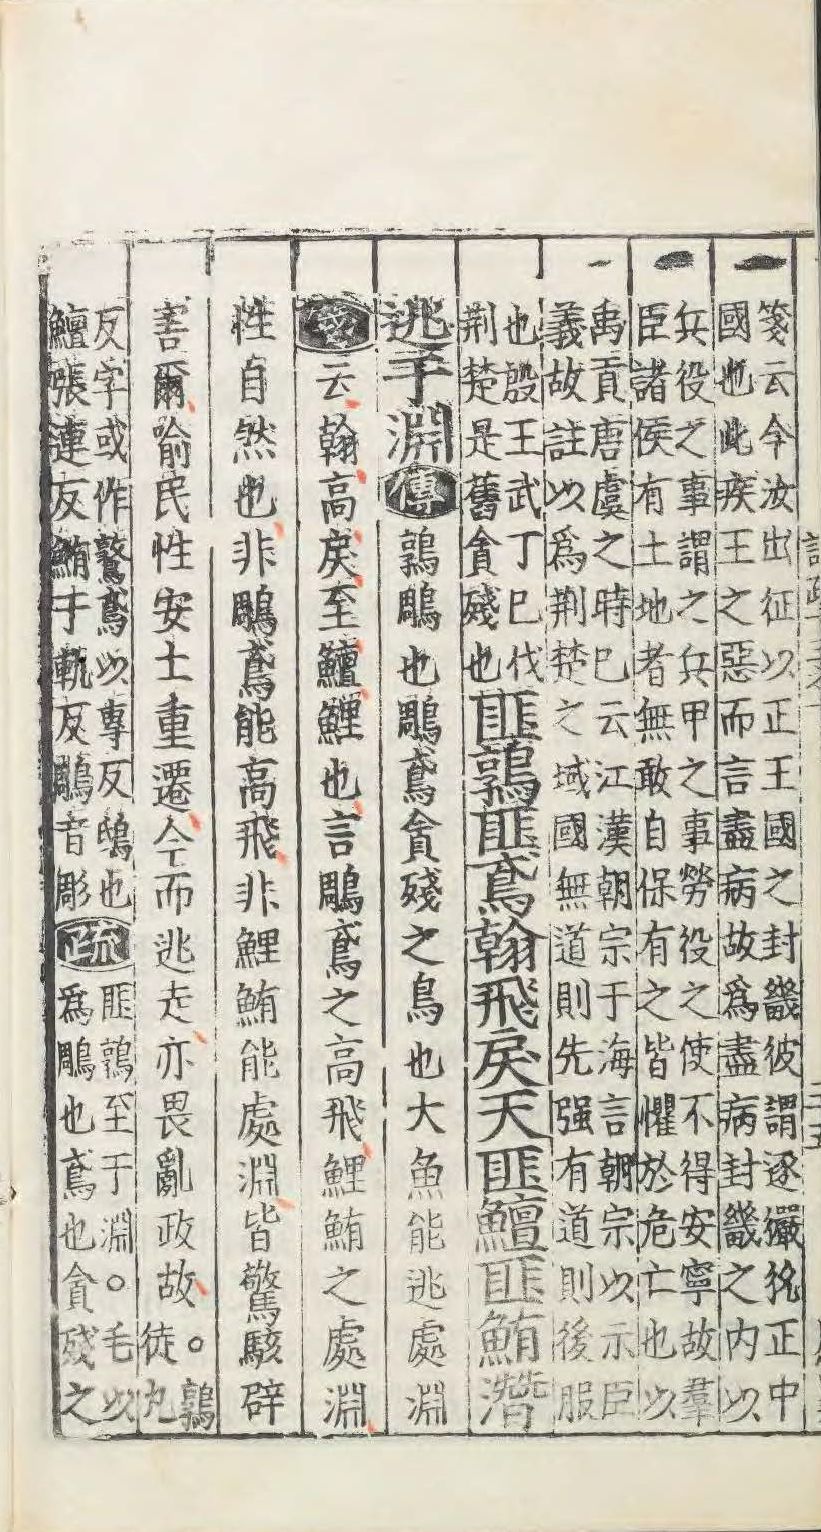 箋云今汝出征以正王國之封畿彼謂逐玁狁正中
國也此疾王之惡而言盡病故爲盡病封畿之内以
兵役之事謂之兵甲之事勞役之使不得安寧故羣
臣諸侯有土地者無敢自保有之皆懼於危亡也以
禹貢唐虞之時巳云江漢朝宗于海言朝宗以示臣
義故註以爲荆楚之域國無道則先强有道則後服
也殷王武丁巳伐
荆楚是舊貪殘也
匪鶉匪鳶翰飛戾天匪鱣匪鮪潛
逃于淵傳鶉鵰也鵰鳶貪殘之鳥也大魚能逃處淵
箋云翰高戾至鱣鯉也言鵰鳶之高飛鯉鮪之處淵
性自然也非鵰鳶能高飛非鯉鮪能處淵皆驚駭辟
害爾喻民性安土重遷今而逃走亦畏亂政故。鶉
徒丸
反字或作鷻鳶以專反鴟也
鱣張連反鮪于軌反鵰音彫
疏
匪鶉至于淵。毛以
爲鵰也鳶也貪殘之